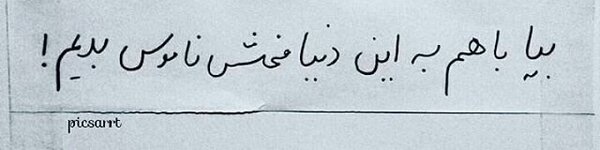 بیا با هم به این دنیا فحش ناموس بدیم!
picsarrt